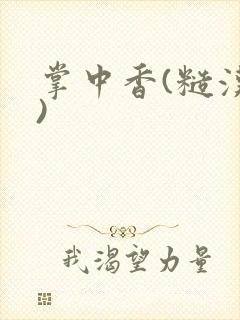 掌中香(糙汉
)
我渴望力量